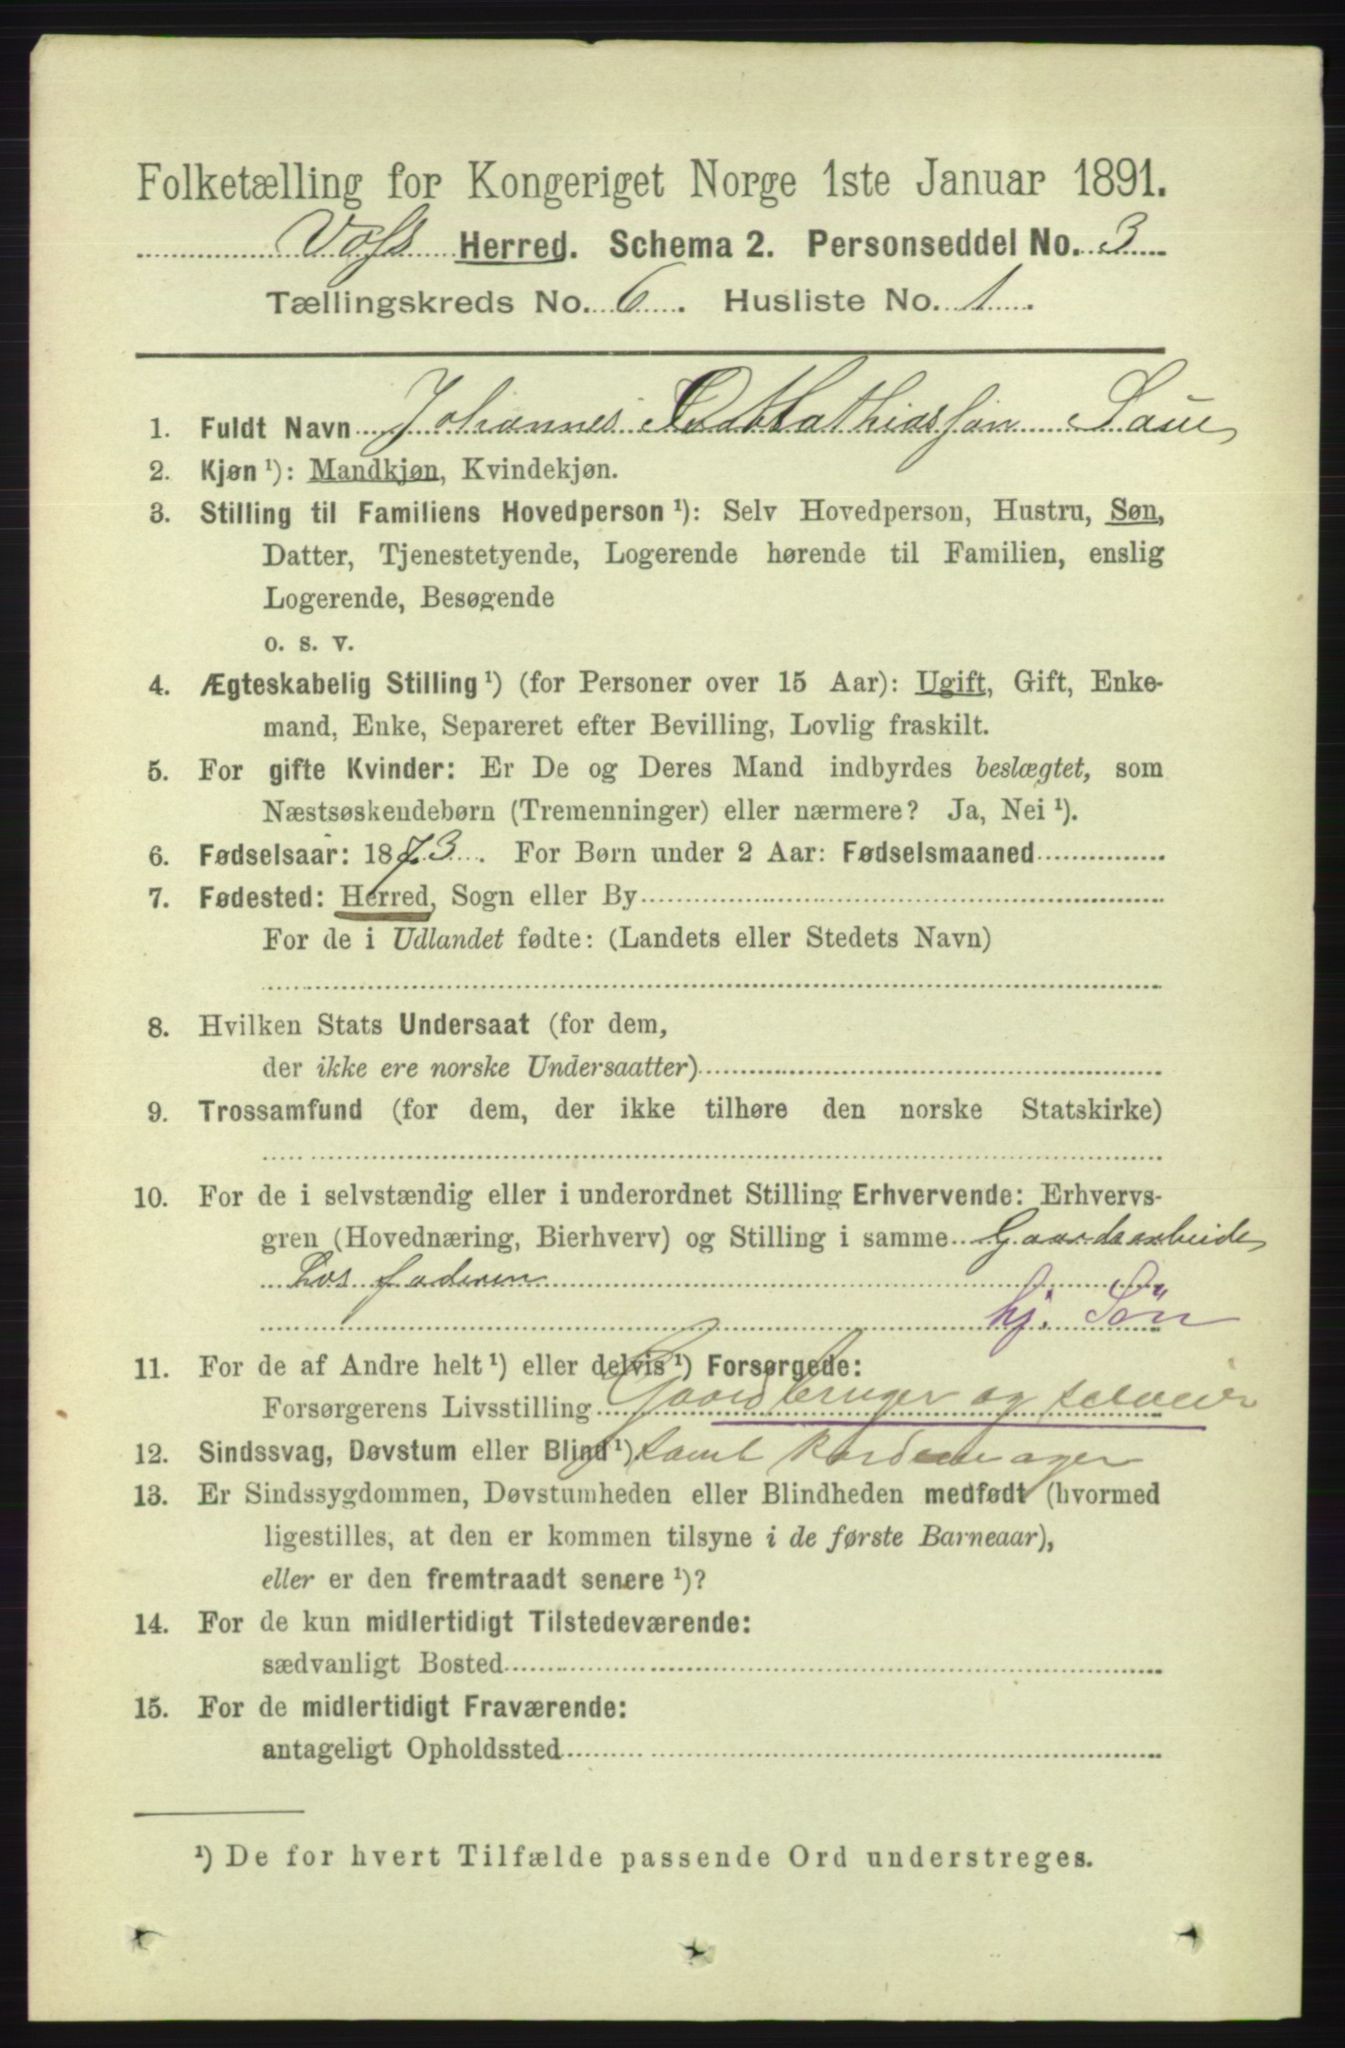 Folketælling for Kongeriget Norge 1ste Januar 1891.
Voss Herred. Schema 2. Personseddel No. 3
Tællingskreds No. 6. Husliste No. 1.
1. Fuldt Navn Johannes Mathiassøn Saue
2. Kjøn ¹): Mandkjøn, Kvindekjøn.
3. Stilling til Familiens Hovedperson ¹): Selv Hovedperson, Hustru, Søn,
Datter, Tjenestetyende, Logerende hørende til Familien, enslig
Logerende, Besøgende
o. s. v.
4. Ægteskabelig Stilling ¹) (for Personer over 15 Aar): Ugift, Gift, Enke-
mand, Enke, Separeret efter Bevilling, Lovlig fraskilt.
5. For gifte Kvinder: Er De og Deres Mand indbyrdes beslægtet, som
Næstsøskendebørn (Tremenninger) eller nærmere? Ja, Nei ¹).
6. Fødselsaar: 1873. For Børn under 2 Aar: Fødselsmaaned
7. Fødested: Herred, Sogn eller By
For de i Udlandet fødte: (Landets eller Stedets Navn)
8. Hvilken Stats Undersaat (for dem,
der ikke ere norske Undersaatter)
9. Trossamfund (for dem, der ikke tilhøre den norske Statskirke)
10. For de i selvstændig eller i underordnet Stilling Erhvervende: Erhvervs-
gren (Hovednæring, Bierhverv) og Stilling i samme Gaardsarbeide
hos faderen
hj. Sön
11. For de af Andre helt ¹) eller delvis ¹) Forsørgede:
Forsørgerens Livsstilling Gaardbruger og selveier
12. Sindssvag, Døvstum eller Blind ¹). samt
13. Er Sindssygdommen, Døvstumheden eller Blindheden medfødt (hvormed
ligestilles, at den er kommen tilsyne i de første Barneaar),
eller er den fremtraadt senere ¹)?
14. For de kun midlertidigt Tilstedeværende:
sædvanligt Bosted
15. For de midlertidigt Fraværende:
antageligt Opholdssted
¹) De for hvert Tilfælde passende Ord understreges.